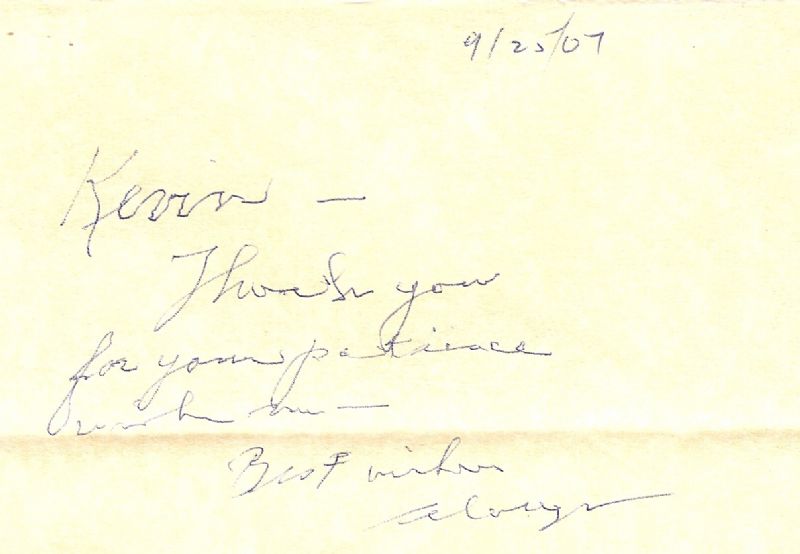 9/25/07
Kevin —
Thank you
for your patience
with me —
Best wishes
always